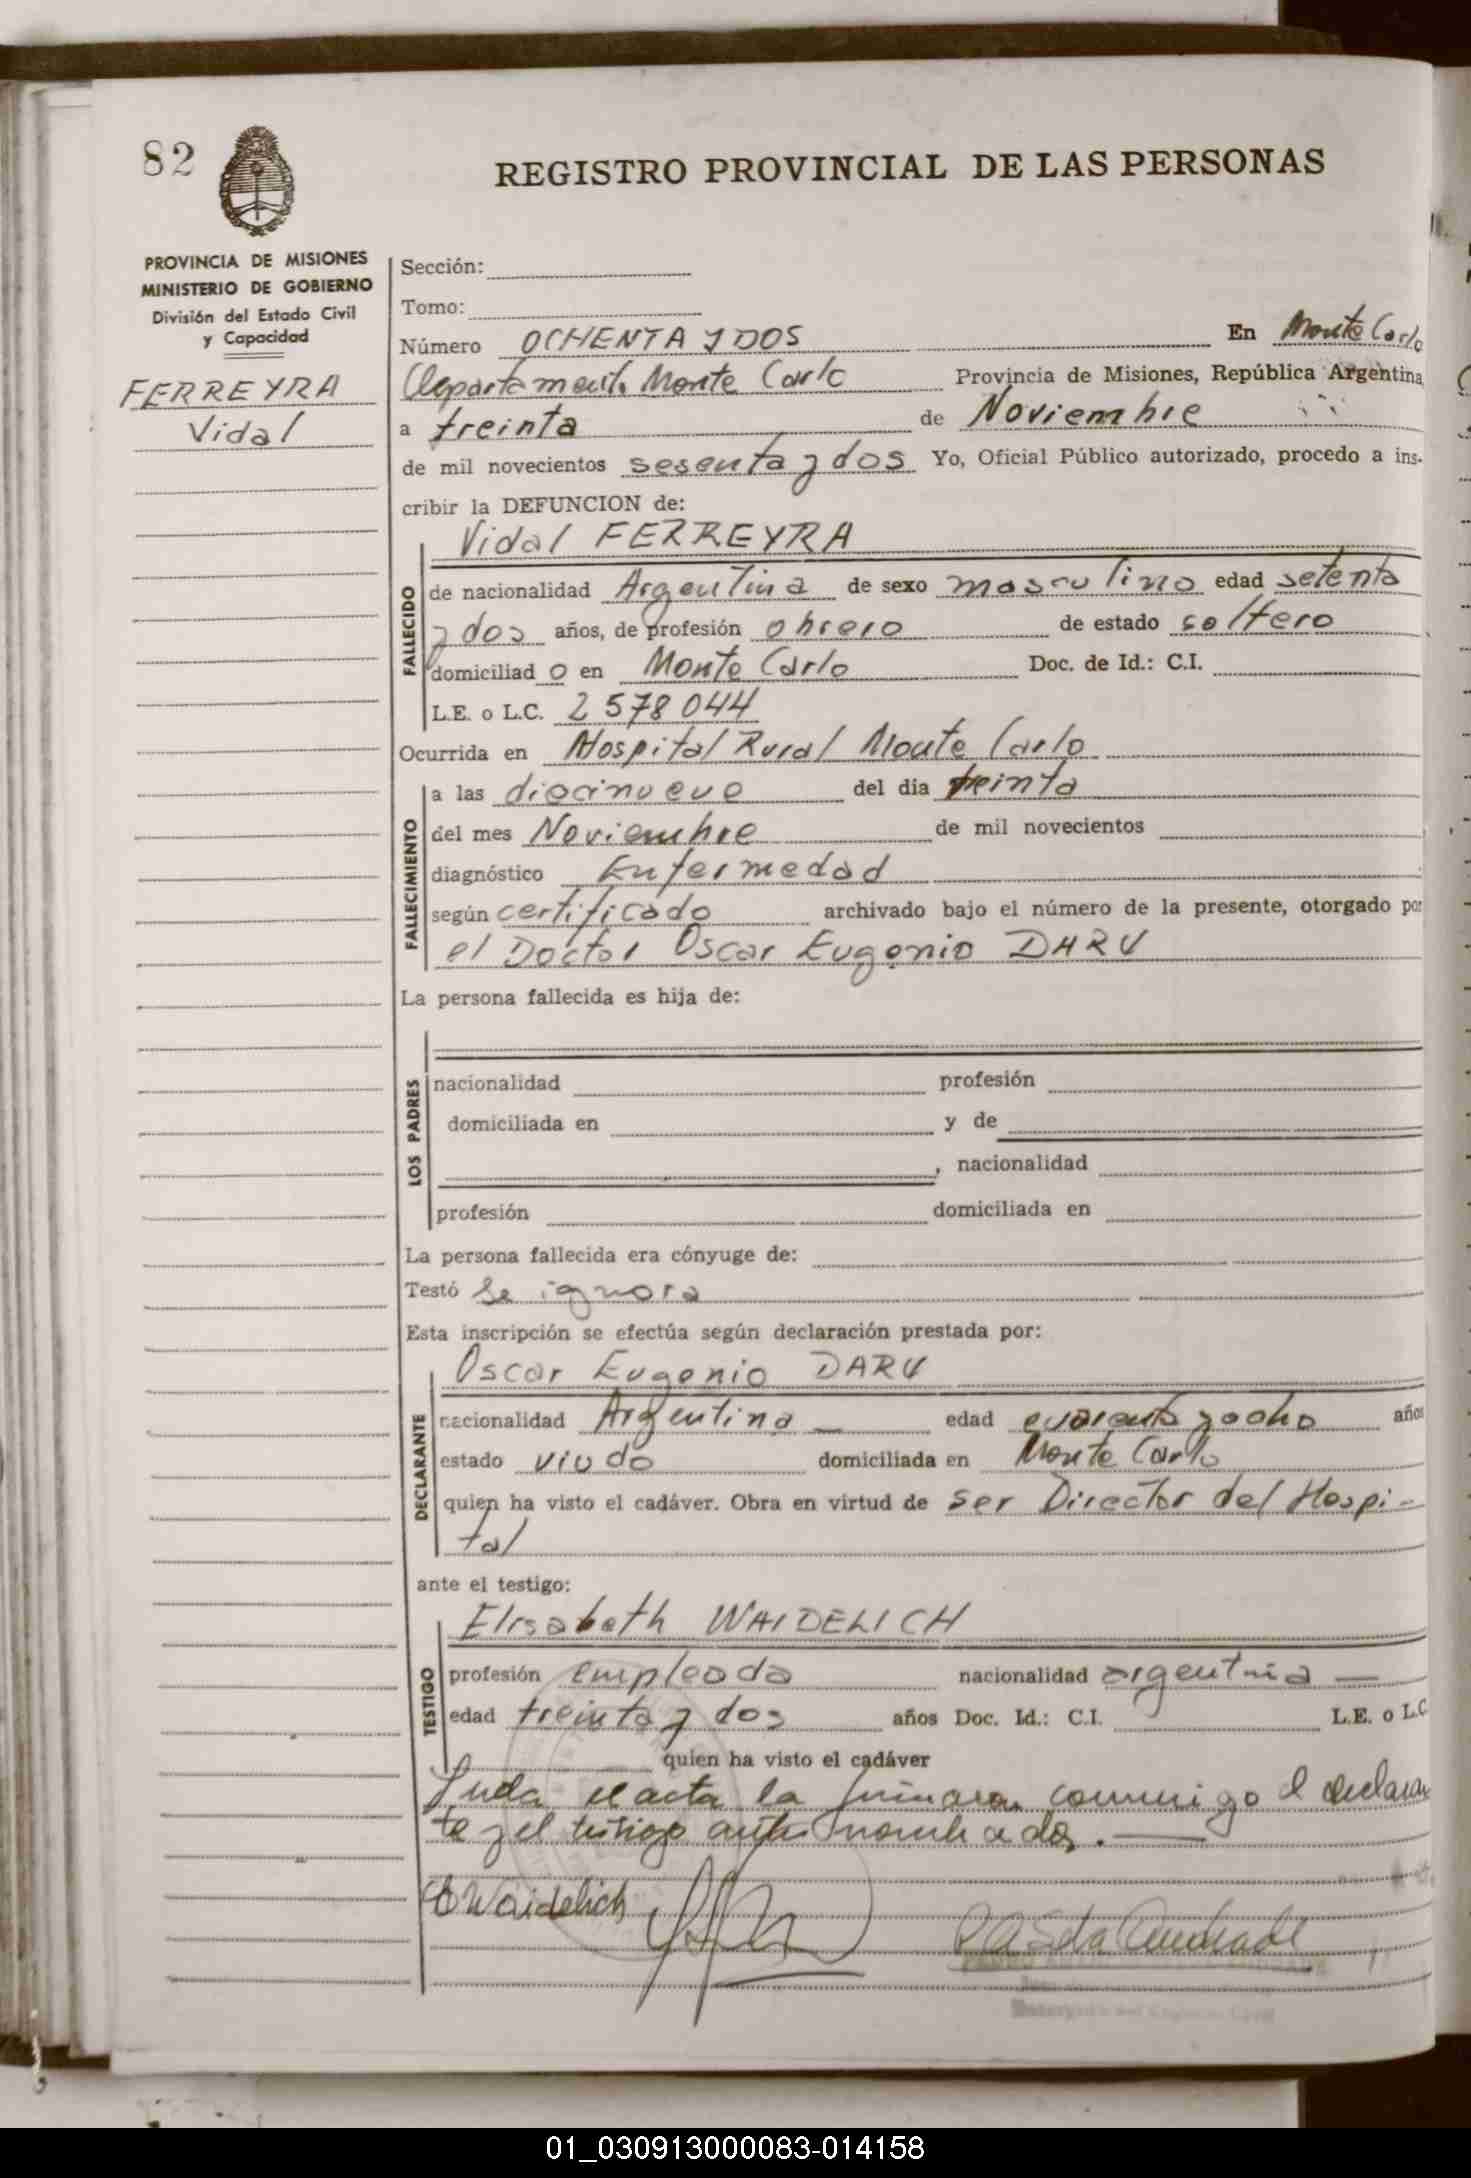 82
REGISTRO PROVINCIAL DE LAS PERSONAS
PROVINCIA DE MISIONES
MINISTERIO DE GOBIERNO
División del Estado Civil
y Capacidad
FERREYRA
Vidal
Sección:
Tomo:
Número OCHENTA y DOS En Monte Carlo
Departamento Monte Carlo Provincia de Misiones, República Argentina
a treinta de Noviembre
de mil novecientos sesenta y dos Yo, Oficial Público autorizado, procedo a ins-
cribir la DEFUNCION de:
Vidal FERREYRA
FALLECIDO
de nacionalidad Argentina de sexo masculino edad setenta
y dos años, de profesión obrero de estado soltero
domiciliad o en Monte Carlo Doc. de Id.: C.I.
L.E. o L.C. 2 578 044
Ocurrida en Hospital Rural Monte Carlo
FALLECIMIENTO
a las diecinueve del día treinta
del mes Noviembre de mil novecientos
diagnóstico Enfermedad
según certificado archivado bajo el número de la presente, otorgado por
el Doctor Oscar Eugenio DARU
La persona fallecida es hija de:
LOS PADRES
nacionalidad profesión
domiciliada en y de
, nacionalidad
profesión domiciliada en
La persona fallecida era cónyuge de:
Testó Se ignora
Esta inscripción se efectúa según declaración prestada por:
Oscar Eugenio DARU
DECLARANTE
nacionalidad Argentina — edad cuarenta y ocho años
estado viudo domiciliada en Monte Carlo
quien ha visto el cadáver. Obra en virtud de ser Director del Hospi-
tal
ante el testigo:
Elisabeth WAIDELICH
TESTIGO
profesión empleada nacionalidad argentina —
edad treinta y dos años Doc. Id.: C.I. L.E. o L.C
quien ha visto el cadáver
acta la conmigo el declaran
te y el testigo nombrados. —
Waidelich
01_030913000083-014158